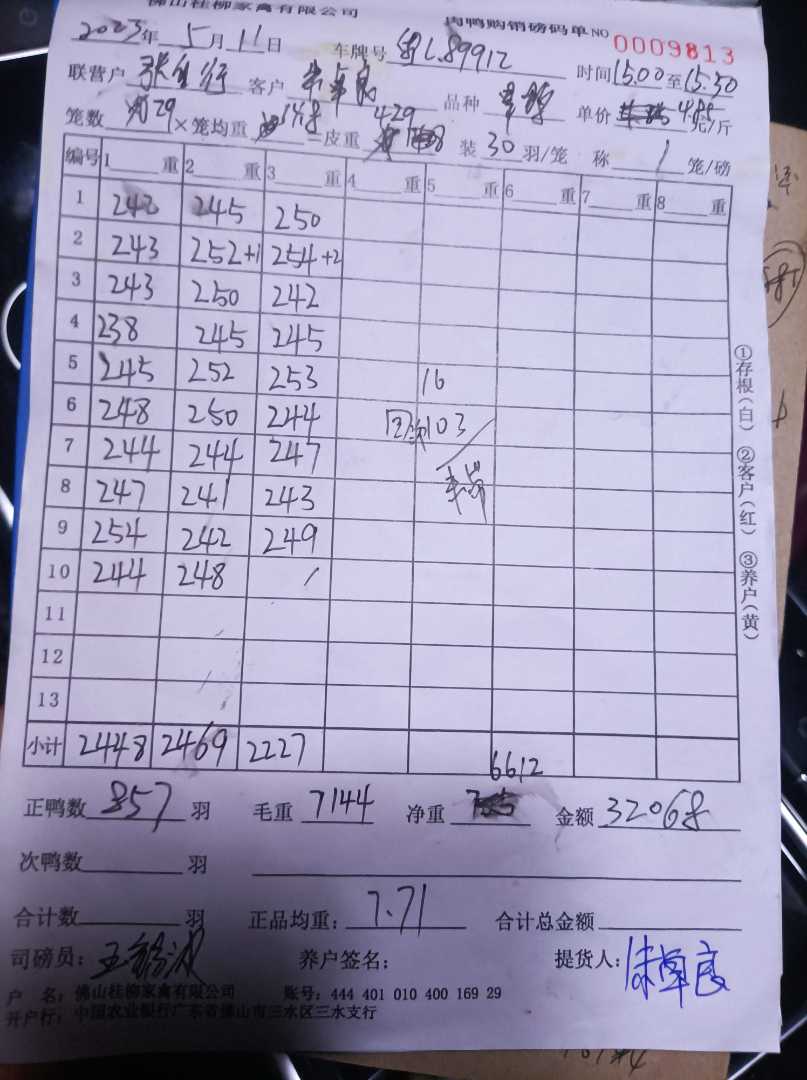 佛山桂柳家禽有限公司 肉鸭购销磅码单 NO 0009813
2023年 5月 11日 车牌号 粤L89912 时间15.00至15.30
联营户 客户 品种 单价 4.85元/斤
笼数 29 ×笼均重 14.8 =皮重 429 装 30 羽/笼 称 1 笼/磅
编号 1 重 2 重 3 重 4 重 5 重 6 重 7 重 8 重
1 242 245 250
2 243 252+1 254+2
3 243 250 242
4 238 245 245
5 245 252 253 16
6 248 250 244 103
7 244 244 247
8 247 241 243
9 254 242 249
10 244 248 /
11
12
13
小计 2448 2469 2227
6612
正鸭数 857 羽 毛重 7144 净重 金额 32068
次鸭数 羽
合计数 羽 正品均重: 7.71 合计总金额
司磅员: 养户签名: 提货人:
户 名: 佛山桂柳家禽有限公司 账号: 444 401 010 400 169 29
开户行: 中国农业银行广东省佛山市三水区三水支行
①存根(白) ②客户(红) ③养户(黄)